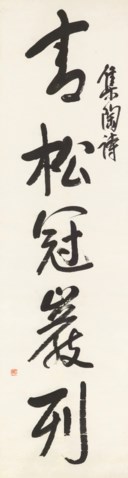 集陶诗
青松冠巖列